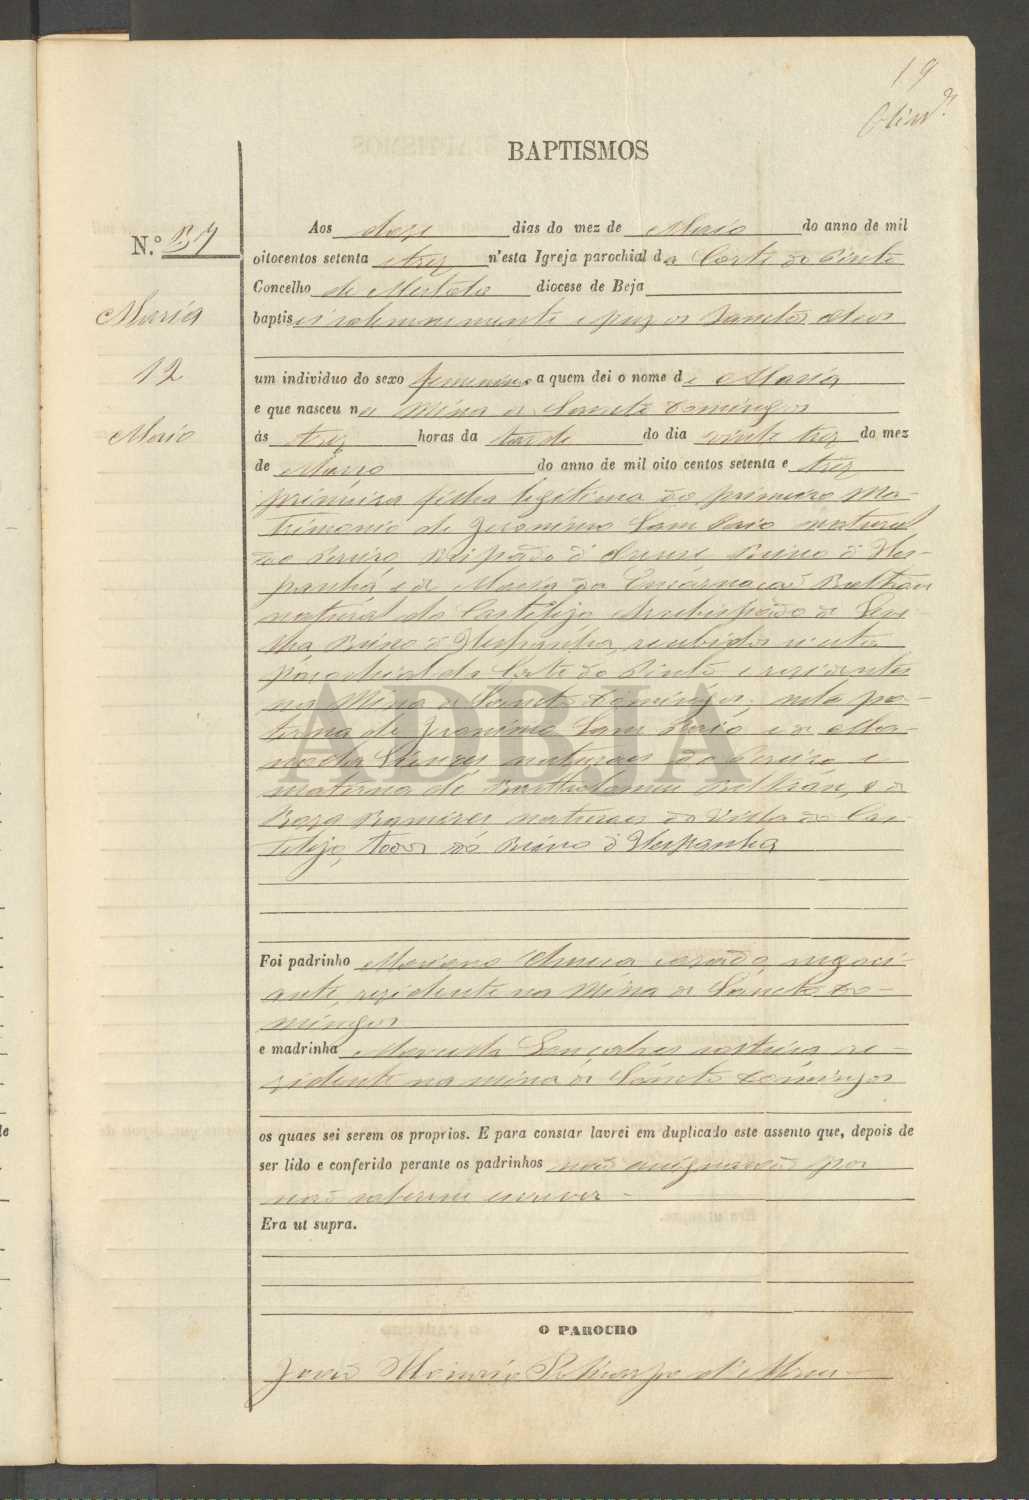 19
BAPTISMOS
N.º 37
Maria
12
Maio
Aos doze dias do mez de Maio do anno de mil
oitocentos setenta e trez n'esta Igreja parochial da Corte do Pinto
Concelho de Mertola diocese de Beja
baptisei solemnemente e puz os Sanctos oleos
um individuo do sexo femenino a quem dei o nome de Maria
e que nasceu na Mina de Sancto Domingos
ás trez horas da tarde do dia vinte trez do mez
de Março do anno de mil oito centos setenta e trez
primeira filha legitima do primeiro Ma-
trimonio de Jeronimo Sam Paio natural
do Pereiro, Bispado d' Orense Reino d' Hes-
panha e de Maria da Encarnação Beltran
natural do Castilejo Arcebispado de Sevi-
lha Reino d' Hespanha, recebidos n'esta
parochial da Corte do Pinto e rezidentes
na Mina de Sancto Domingos; neta pa-
terna de Jeronimo Sam Paio e de Ma-
naturaes do Pereiro e
materna de Bartholomeu Beltran, e de
Roza Ramires naturaes da Villa do Cas-
tilejo, todos do Reino d' Hespanha
ADBJA
Foi padrinho Mariano cazado, negoci-
ante, rezidente na Mina de Sancto Do-
mingos
e madrinha Manuela Gonçalves solteira re-
zidente na mina de Sancto Domingos
os quaes sei serem os proprios. E para constar lavrei em duplicado este assento que, depois de
ser lido e conferido perante os padrinhos não assignarão por
não saberem escrever -
Era ut supra.
O PAROCHO
João Polycarpo d'